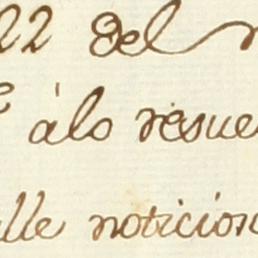 22 del
álo resue
lle noticion